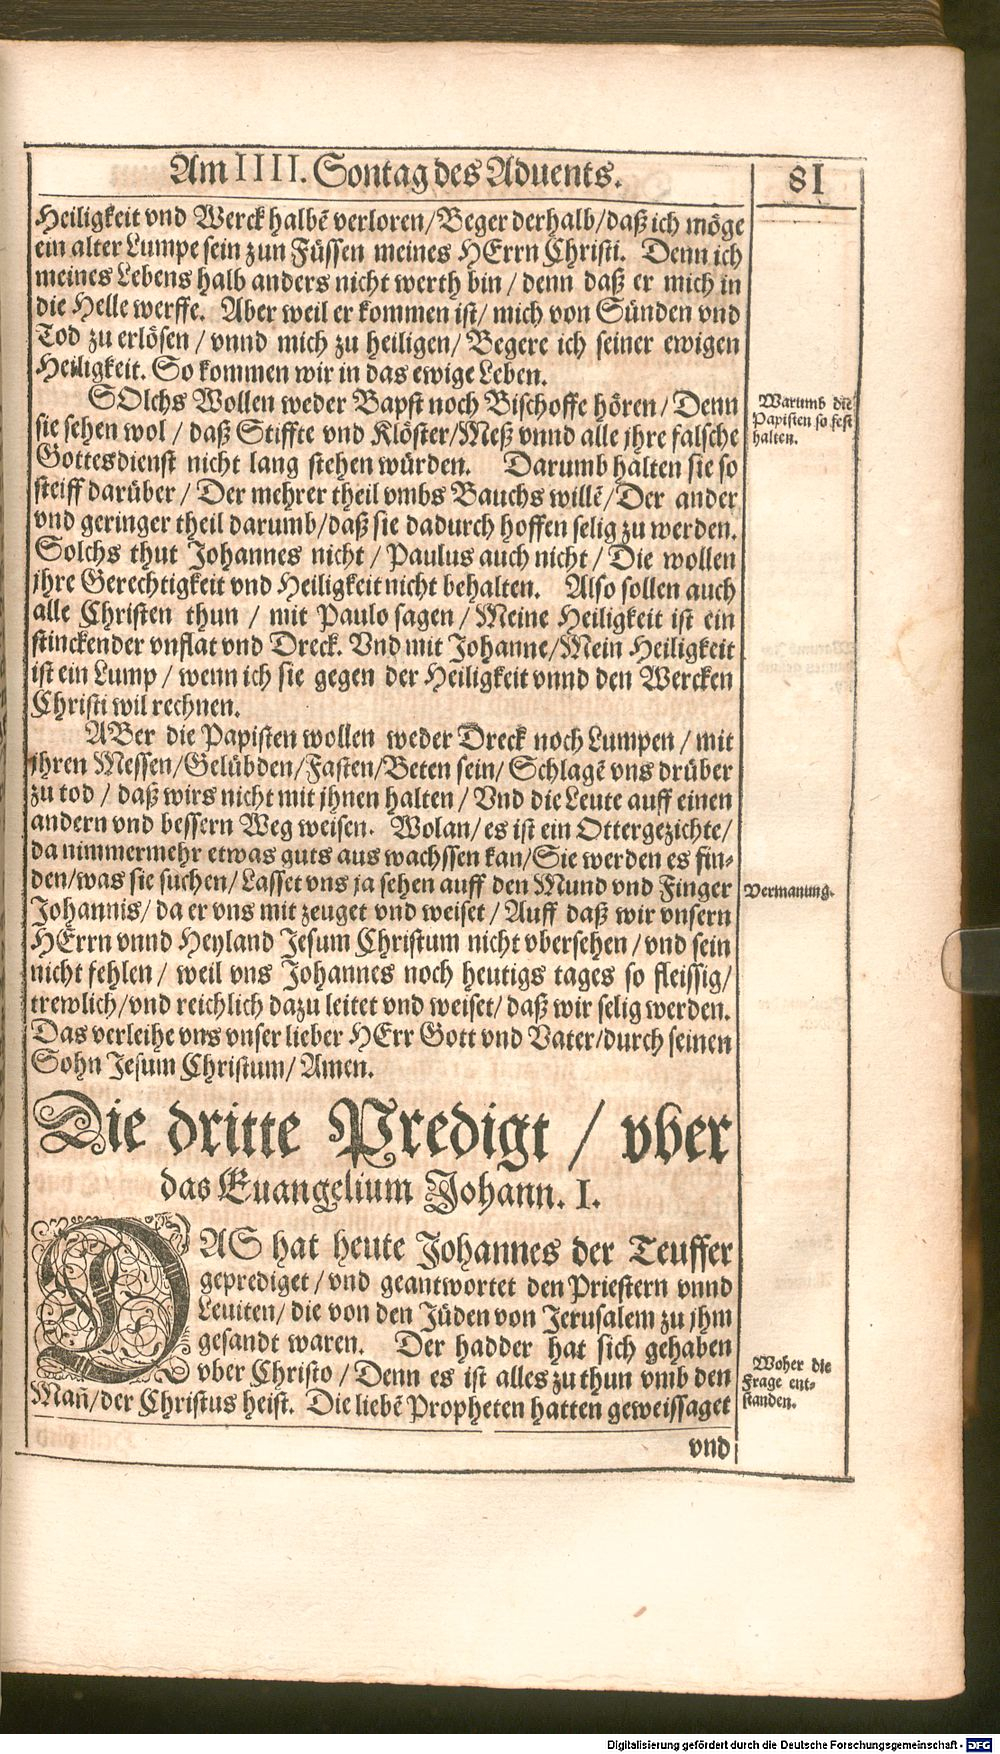 Am IIII. Sontag des Aduents. 81
Heiligkeit vnd Werck halbẽ verloren/Beger derhalb/daß ich möge
ein alter Lumpe sein zun Füssen meines HErrn Christi. Denn ich
meines Lebens halb anders nicht werth bin / denn daß er mich in
die Helle werffe. Aber weil er kommen ist/ mich von Sünden vnd
Tod zu erlösen / vnnd mich zu heiligen/ Begere ich seiner ewigen
Heiligkeit. So kommen wir in das ewige Leben.
SOlchs Wollen weder Bapst noch Bischoffe hören/ Denn
sie sehen wol / daß Stiffte vnd Klöster/Meß vnnd alle jhre falsche
Gottesdienst nicht lang stehen würden. Darumb halten sie so
steiff darüber / Der mehrer theil vmbs Bauchs willẽ/Der ander
vnd geringer theil darumb/daß sie dadurch hoffen selig zu werden.
Solchs thut Johannes nicht / Paulus auch nicht / Die wollen
jhre Gerechtigkeit vnd Heiligkeit nicht behalten. Also sollen auch
alle Christen thun / mit Paulo sagen / Meine Heiligkeit ist ein
stinckender vnflat vnd Dreck. Vnd mit Johanne/Mein Heiligkeit
ist ein Lump / wenn ich sie gegen der Heiligkeit vnnd den Wercken
Christi wil rechnen.
Warumb die
Papisten so fest
halten.
ABer die Papisten wollen weder Dreck noch Lumpen / mit
jhren Messen/Gelübden/Fasten/Beten sein/ Schlagẽ vns drüber
zu tod / daß wirs nicht mit jhnen halten / Vnd die Leute auff einen
andern vnd bessern Weg weisen. Wolan/ es ist ein Ottergezichte/
da nimmermehr etwas guts aus wachssen kan/Sie werden es fin-
den/was sie suchen/ Lasset vns ja sehen auff den Mund vnd Finger
Johannis/ da er vns mit zeuget vnd weiset / Auff daß wir vnsern
HErrn vnnd Heyland Jesum Christum nicht vbersehen / vnd sein
nicht fehlen / weil vns Johannes noch heutigs tages so fleissig/
trewlich/vnd reichlich dazu leitet vnd weiset/ daß wir selig werden.
Das verleihe vns vnser lieber HErr Gott vnd Vater/durch seinen
Sohn Jesum Christum/ Amen.
Vermanung.
Die dritte Predigt / vber
das Euangelium Johann. I.
DAS hat heute Johannes der Teuffer
geprediget / vnd geantwortet den Priestern vnnd
Leuiten/ die von den Jüden von Jerusalem zu jhm
gesandt waren. Der hadder hat sich gehaben
vber Christo / Denn es ist alles zu thun vmb den
Mañ/der Christus heist. Die liebẽ Propheten hatten geweissaget
Woher die
Frage ent-
standen.
vnd
Digitalisierung gefördert durch die Deutsche Forschungsgemeinschaft - DFG